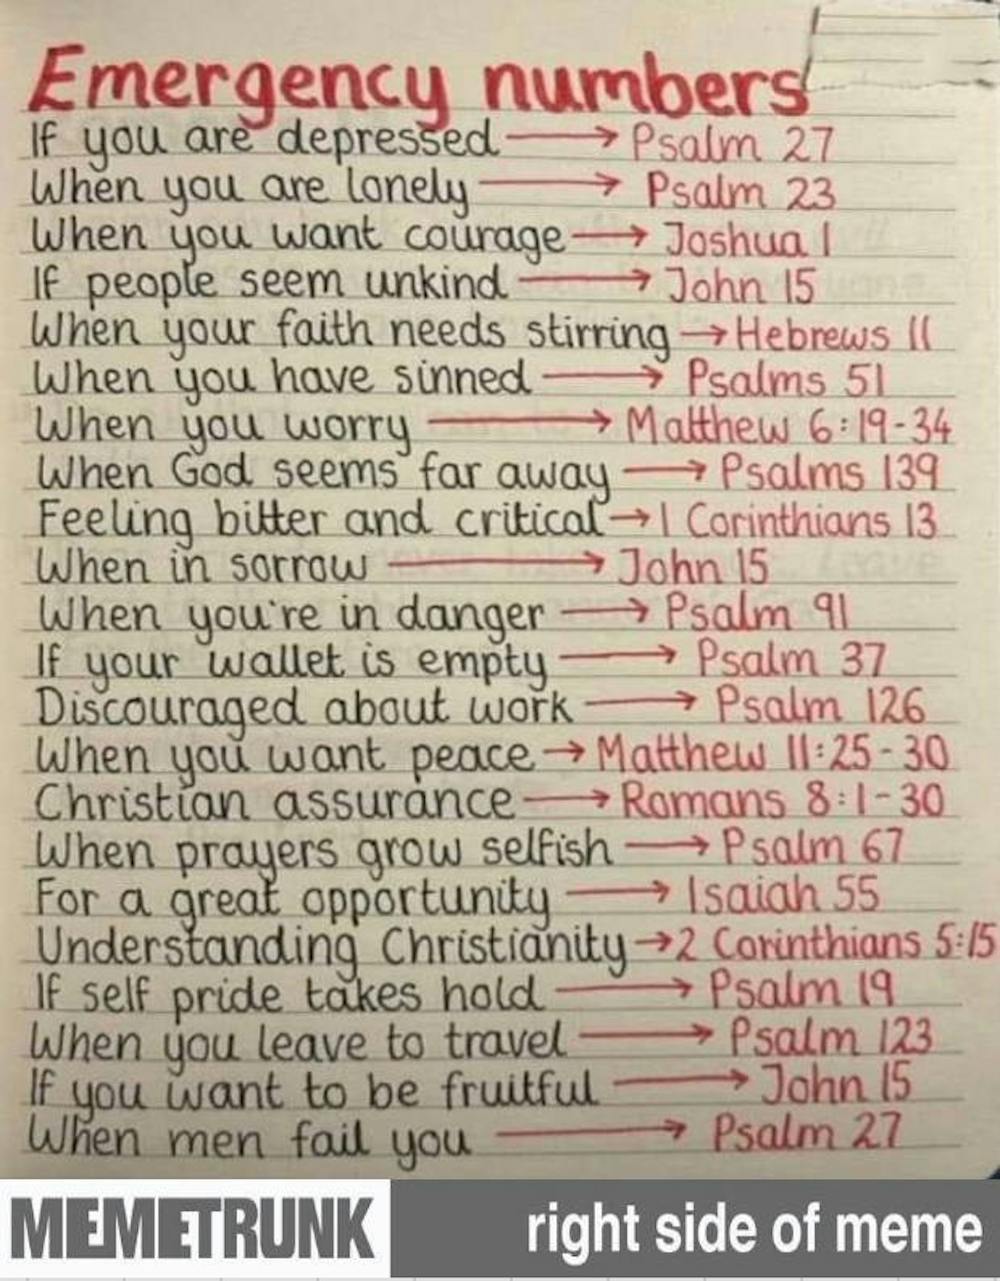 Emergency numbers
If you are depressed → Psalm 27
When you are lonely → Psalm 23
When you want courage → Joshua 1
If people seem unkind → John 15
When your faith needs stirring → Hebrews 11
When you have sinned → Psalms 51
When you worry → Matthew 6:19-34
When God seems far away → Psalms 139
Feeling bitter and critical → 1 Corinthians 13
When in sorrow → John 15
When you're in danger → Psalm 91
If your wallet is empty → Psalm 37
Discouraged about work → Psalm 126
When you want peace → Matthew 11:25-30
Christian assurance → Romans 8:1-30
When prayers grow selfish → Psalm 67
For a great opportunity → Isaiah 55
Understanding Christianity → 2 Corinthians 5:15
If self pride takes hold → Psalm 19
When you leave to travel → Psalm 123
If you want to be fruitful → John 15
When men fail you → Psalm 27
MEMETRUNK right side of meme